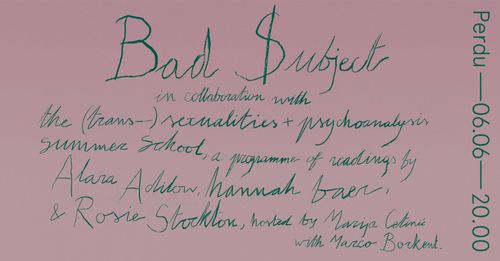 Bad $ubject
in collaboration with
the (trans-) sexualities + psychoanalysis
summer school, a programme of readings by
Alara Adilow, hannah baer,
& Rosie Stockton, hosted by Marija Cetinić
with Marco Bockent.
Perdu — 06.06 — 20.00